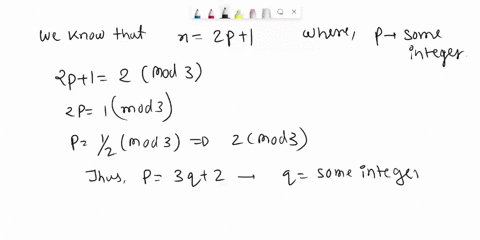 We know that n = 2p+1 where, p → some integer.
2p+1 = 2 (mod 3)
2p = 1 (mod 3)
p = 1/2 (mod 3) ⇒ 2 (mod 3)
Thus, p = 3q+2 → q = some integer